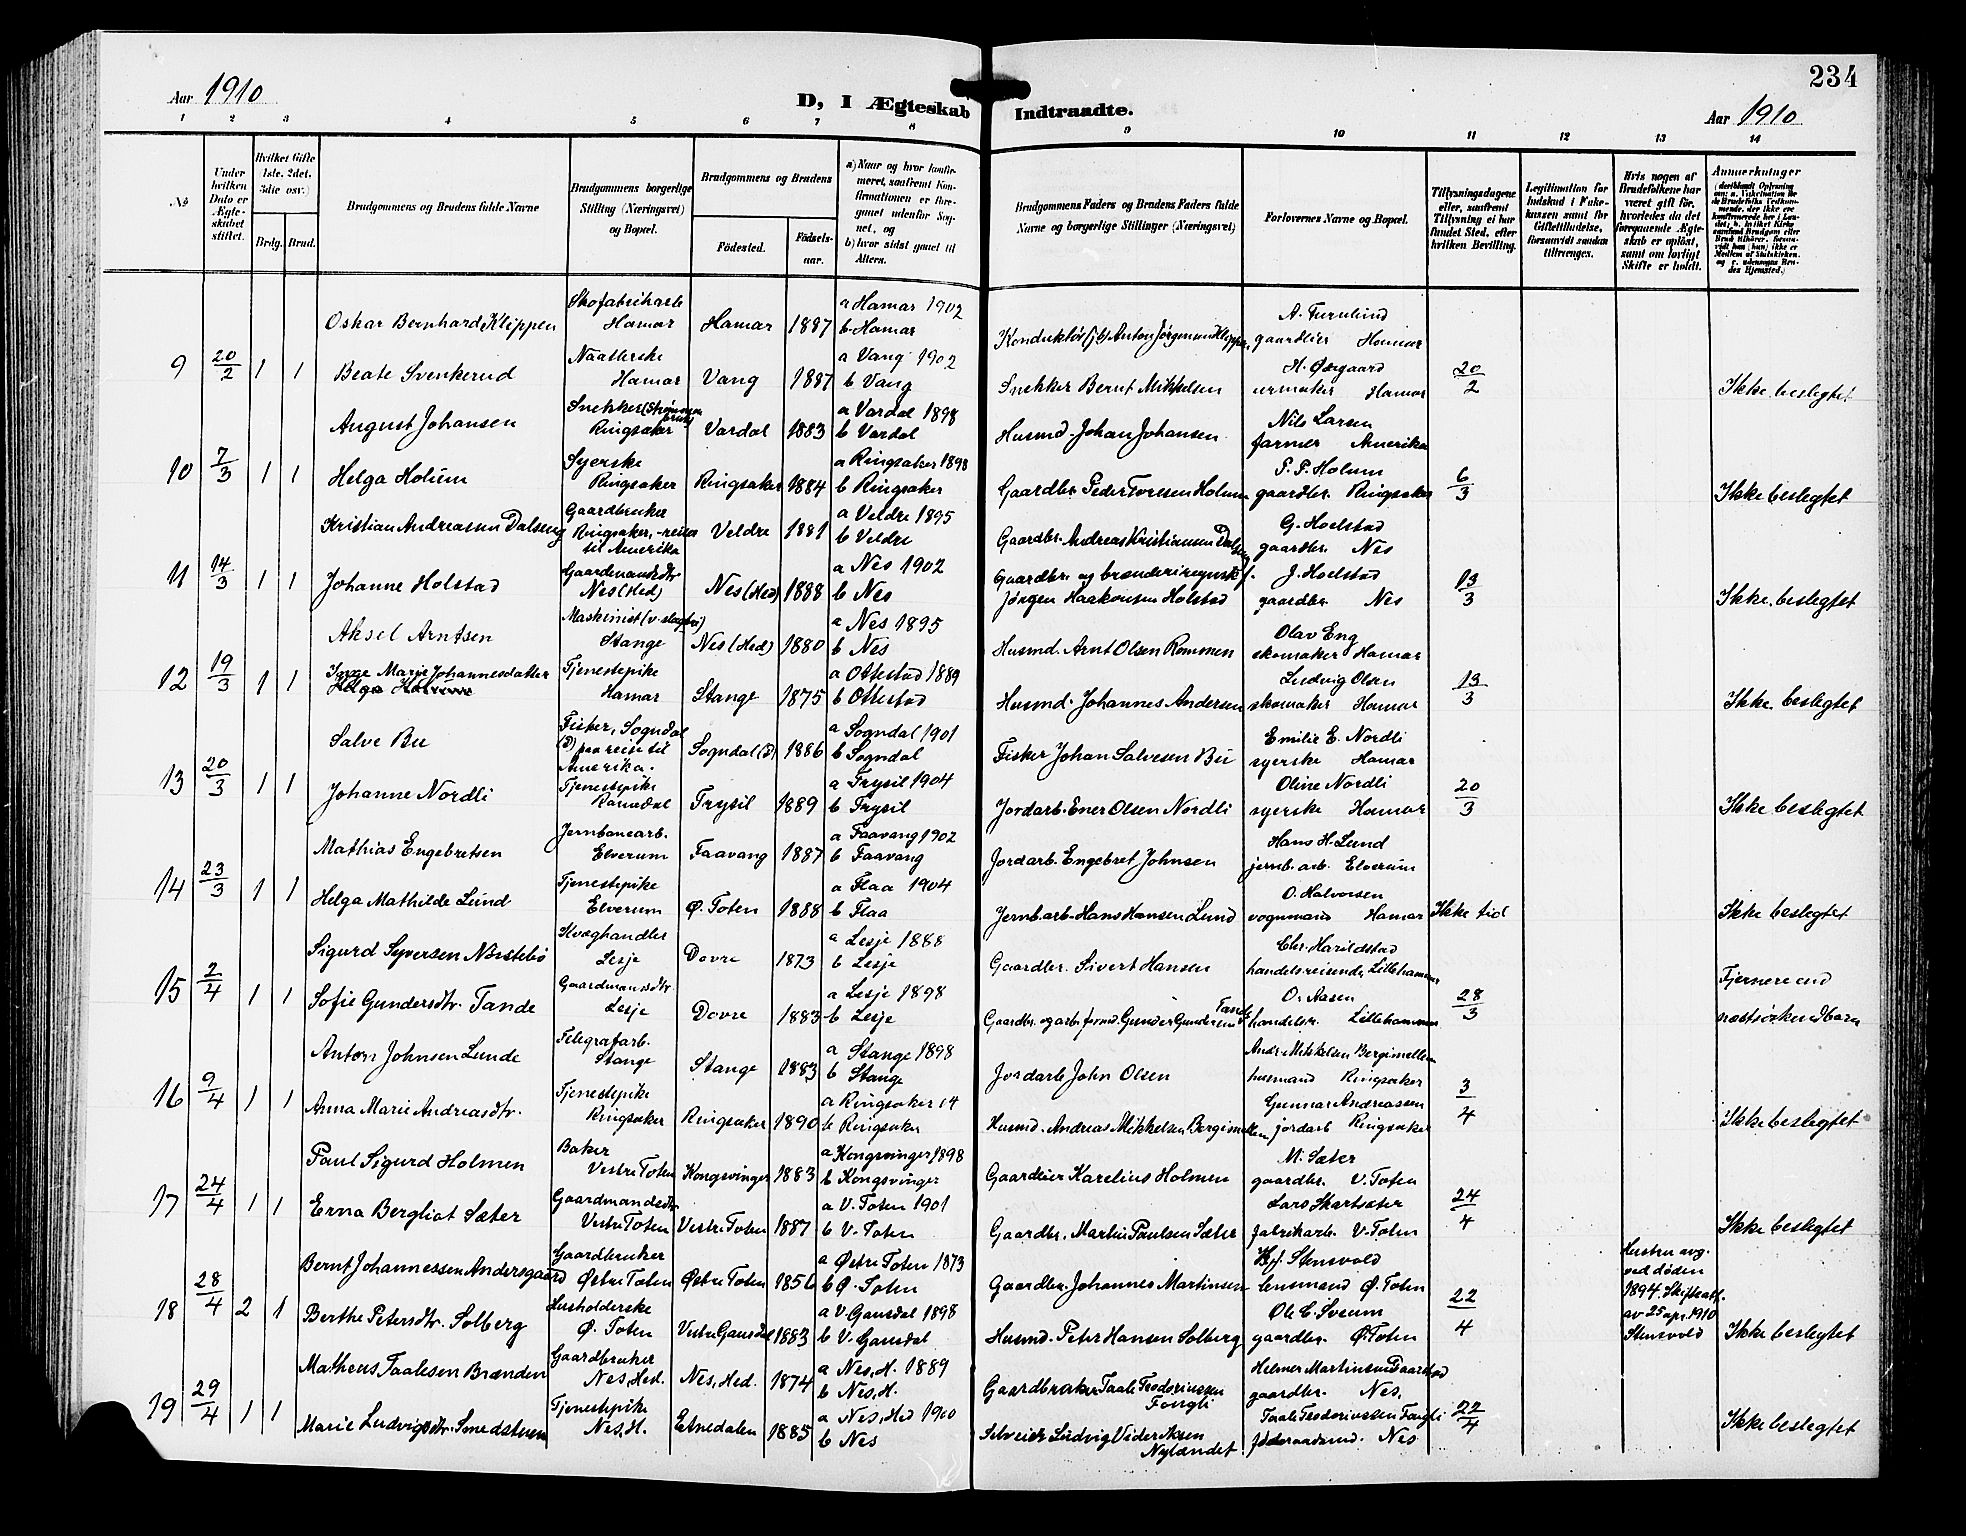 234
Aar 1910
D, I Ægteskab Indtraadte.
Aar 1910
1 2 3 4 5 6 7 8 9 10 11 12 13 14
No
Under hvilken Dato er Ægteskabet stiftet.
Hvilket Gifte 1ste, 2det, 3die osv.)
Brdg. Brud.
Brudgommens og Brudens fulde Navne
Brudgommens borgerlige Stilling (Næringsvei) og Bopæl.
Brudgommens og Brudens
Fødested.
Fødselsaar.
a) Naar og hvor konfirmeret, saafremt Konfirmationen er foregaaet udenfor Sognet, og
b) hvor sidst gaaet til Alters.
Brudgommens Faders og Brudens Faders fulde Navne og borgerlige Stillinger (Næringsvei)
Forlovernes Navne og Bopæl.
Tillysningsdagene eller, saafremt Tillysning ei har fundet Sted, efter hvilken Bevilling.
Legitimation for Indskud i Enkekassen samt for Giftetilladelse, forsaavidt saadan tiltrænges.
Hvis nogen af Brudefolkene har været gift før, hvorledes da det foregaaende Ægteskab er opløst, samt om lovligt Skifte er holdt.
Anmærkninger
Oskar Bernhard Klippen
Skofabrikarb Hamar
Hamar 1887
a Hamar 1902
b Hamar
Konduktør (jb) Anton Jørgensen Klippen
A. Furulund
gaardeier Hamar
9 20/2 1 1
Beate Svenkerud
Naatlerske Hamar
Vang 1887
a Vang 1902
b Vang
Snekker Bernt Mikkelsen
H. Øergaard
urmaker Hamar
20/2
Ikke beslegtet
August Johansen
Snekker (Strømmen bruk)
Ringsaker
Vardal 1883
a Vardal 1898
b Vardal
Husmd. Johan Johansen
Nils Larsen
farmer Amerika
10 7/3 1 1
Helga Holum
Syerske
Ringsaker
Ringsaker 1884
a Ringsaker 1898
b Ringsaker
Gaardbr. Peder Toresen Holum
P. P. Holum
gaardbr. Ringsaker
6/3
Ikke beslegtet
Kristian Andreassen Dalseng
Gaardbruker
Ringsaker, -reiser
til Amerika
Veldre 1881
a Veldre 1895
b Veldre
Gaardbr. Andreas Kristiansen Dalseng
G. Hoelstad
gaardbr. Nes
11 14/3 1 1
Johanne Holstad
Gaardmandsdtr
Nes (Hed)
Nes (Hed) 1888
a Nes 1902
b Nes
Gaardbr. og brænderiregnskf.
Jørgen Haakonsen Holstad
J. Hoelstad
gaardbr. Nes
13/3
Ikke beslegtet
Aksel Arntsen
Maskinist (v. slagteri)
Stange
Nes (Hed) 1880
a Nes 1895
b Nes
Husmd. Arnt Olsen Rommen
Olav Eng
skomaker Hamar
12 19/3 1 1
Inge Marie Johannesdatter
Helga
Tjenestepike
Hamar
Stange 1875
a Ottestad 1889
b Ottestad
Husmd. Johannes Andersen
Ludvig Olsen
skomaker Hamar
13/3
Ikke beslegtet
Salve Bu
Fisker, Sogndal
(D) paa reise til
Amerika.
Sogndal (D) 1886
a Sogndal 1901
b Sogndal
Fisker Johan Salvesen Bu
Emilie E. Nordli
syerske Hamar
13 20/3 1 1
Johanne Nordli
Tjenestepike
Romedal
Trysil 1889
a Trysil 1904
b Trysil
Jordarb. Ener Olsen Nordli
Oline Nordli
syerske Hamar
20/3
Ikke beslegtet
Mathias Engebretsen
Jernbanearb.
Elverum
Faavang 1887
a Faavang 1902
b Faavang
Jordarb. Engebret Johnsen
Hans H. Lund
jernb. arb. Elverum
14 23/3 1 1
Helga Mathilde Lund
Tjenestepike
Elverum
Ø. Toten 1888
a Flaa 1904
b Flaa
Jernb.arb. Hans Hansen Lund
O. Halvorsen
vognmand Hamar
Ikke tid
Ikke beslegtet
Sigurd Syversen Nørstebø
Kvæghandler
Lesje
Dovre 1873
a Lesje 1888
b Lesje
Gaardbr. Sivert Hansen
Chr. Harildstad
handelsreisende Lillehammer
15 2/4 1 1
Sofie Gundersdtr. Tande
Gaardmandsdtr.
Lesje
Dovre 1883
a Lesje 1898
b Lesje
Gaardbr. og arb. formd. Gunder Gundersen Tande
O. Aasen
handelsr. Lillehammer
28/3
Fjernere end
næstsøskendbarn
Anton Johnsen Lunde
Telegrafarb.
Stange
Stange 1883
a Stange 1898
b Stange
Jordarb John Olsen
Andr. Mikkelsen Bergimellem
husmand Ringsaker
16 9/4 1 1
Anna Marie Andreasdtr.
Tjenestepike
Ringsaker
Ringsaker 1890
a Ringsaker 14
b Ringsaker
Husmd. Andreas Mikkelsen Bergimellem
Gunnar Andreassen
jordarb Ringsaker
3/4
Ikke beslegtet
Paul Sigurd Holmen
Baker
Vestre Toten
Kongsvinger 1883
a Kongsvinger 1898
b Kongsvinger
Gaardeier Karelius Holmen
M. Sæter
gaardbr. V. Toten
17 24/4 1 1
Erna Bergliot Sæter
Gaardmandsdtr
Vestre Toten
Vestre Toten 1887
a V. Toten 1901
b V. Toten
Gaardbr. Martin Paulsen Sæter
Lars Skartsæter
fabrikarb. V. Toten
24/4
Ikke beslegtet
Bernt Johannessen Andersgaard
Gaardbruker
Østre Toten
Østre Toten 1856
a Østre Toten 1873
b Ø. Toten
Gaardbr. Johannes Martinsen
Stensvold
lensmand Ø. Toten
Hustru avg.
ved døden
1894. Skifteatt.
av 25 apr. 1910
Stensvold
18 28/4 2 1
Berthe Petersdtr. Solberg
Husholderske
Ø. Toten
Vestre Gausdal 1883
a V. Gausdal 1898
b V. Gausdal
Husmd. Peter Hansen Solberg
Ole C. Sveum
gaardbr. Ø. Toten
22/4
Ikke beslegtet
Matheus Taalesen Brænden
Gaardbruker
Nes, Hed.
Nes, Hed. 1874
a Nes, H. 1889
b Nes, H.
Gaardbruker Taale Teodorinssen
Fongli
Helmer Martinsen
gaardbr. Nes,
19 29/4 1 1
Marie Ludvigsdtr. Smedstuen
Tjenestepike
Nes, H.
Etnedalen 1885
a Nes, Hed 1900
b Nes
Selveier Ludvig Vederiksen
Nylændet
Taale Teodorinssen Fongli
føderaadsmd. Nes
22/4
Ikke beslegtet